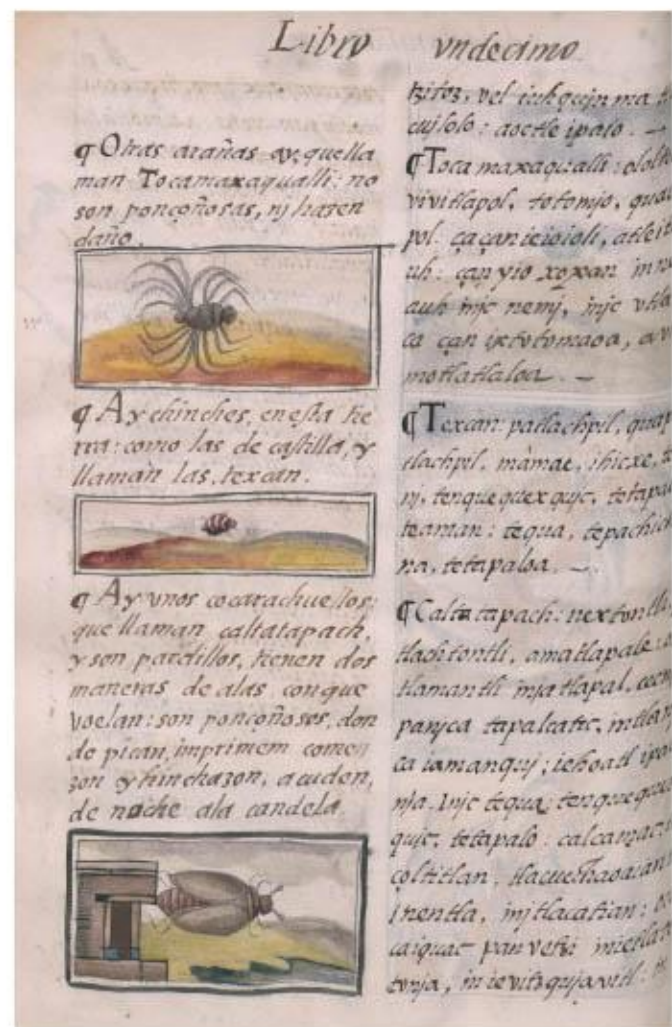 Libro vndecimo.
¶ Otras arañas ay, que lla
man Tocamaxaqualli: no
son ponçoñosas, nj hazen
daño.
¶ Ay chinches, en esta tie
rra: como las de castilla, y
llaman las, texcan.
¶ Ay vnos cocarachuellos:
que llaman caltatapach,
y son pardillos, tienen dos
maneras de alas con que
voelan: son ponçoñosos, don
de pican, imprimem comen
zon y hinchazon, acuden,
de noche ala candela.
vel iuhquin ma
cujlolo: aoctle ipalo.
¶ Toca maxaqualli: olol
vivitlapol, totomjo,
pol. çaçan ieioioli,
uh: çan yio xopan in
auh injc nemj, injc
ca çan ixtotomaoa,
motlatlaloa.
¶ Texcan: patlachpil,
tlachpil, mamae, ihicxe,
nj, tenquequexquic, tetapa
teaman: tequa, tepachi
na, tetapaloa.
¶ Caltatapach: nextontli
tlachtontli, amatlapale:
tlamantli injatlapal,
panjca tapalcatic,
ca iamanquj; iehoatl
nja. Injc tequa; tenquequex
quic, tetapalo: calcamac
çoltitlan,
inentla, injtlacatian:
pan vetzi
tonja,